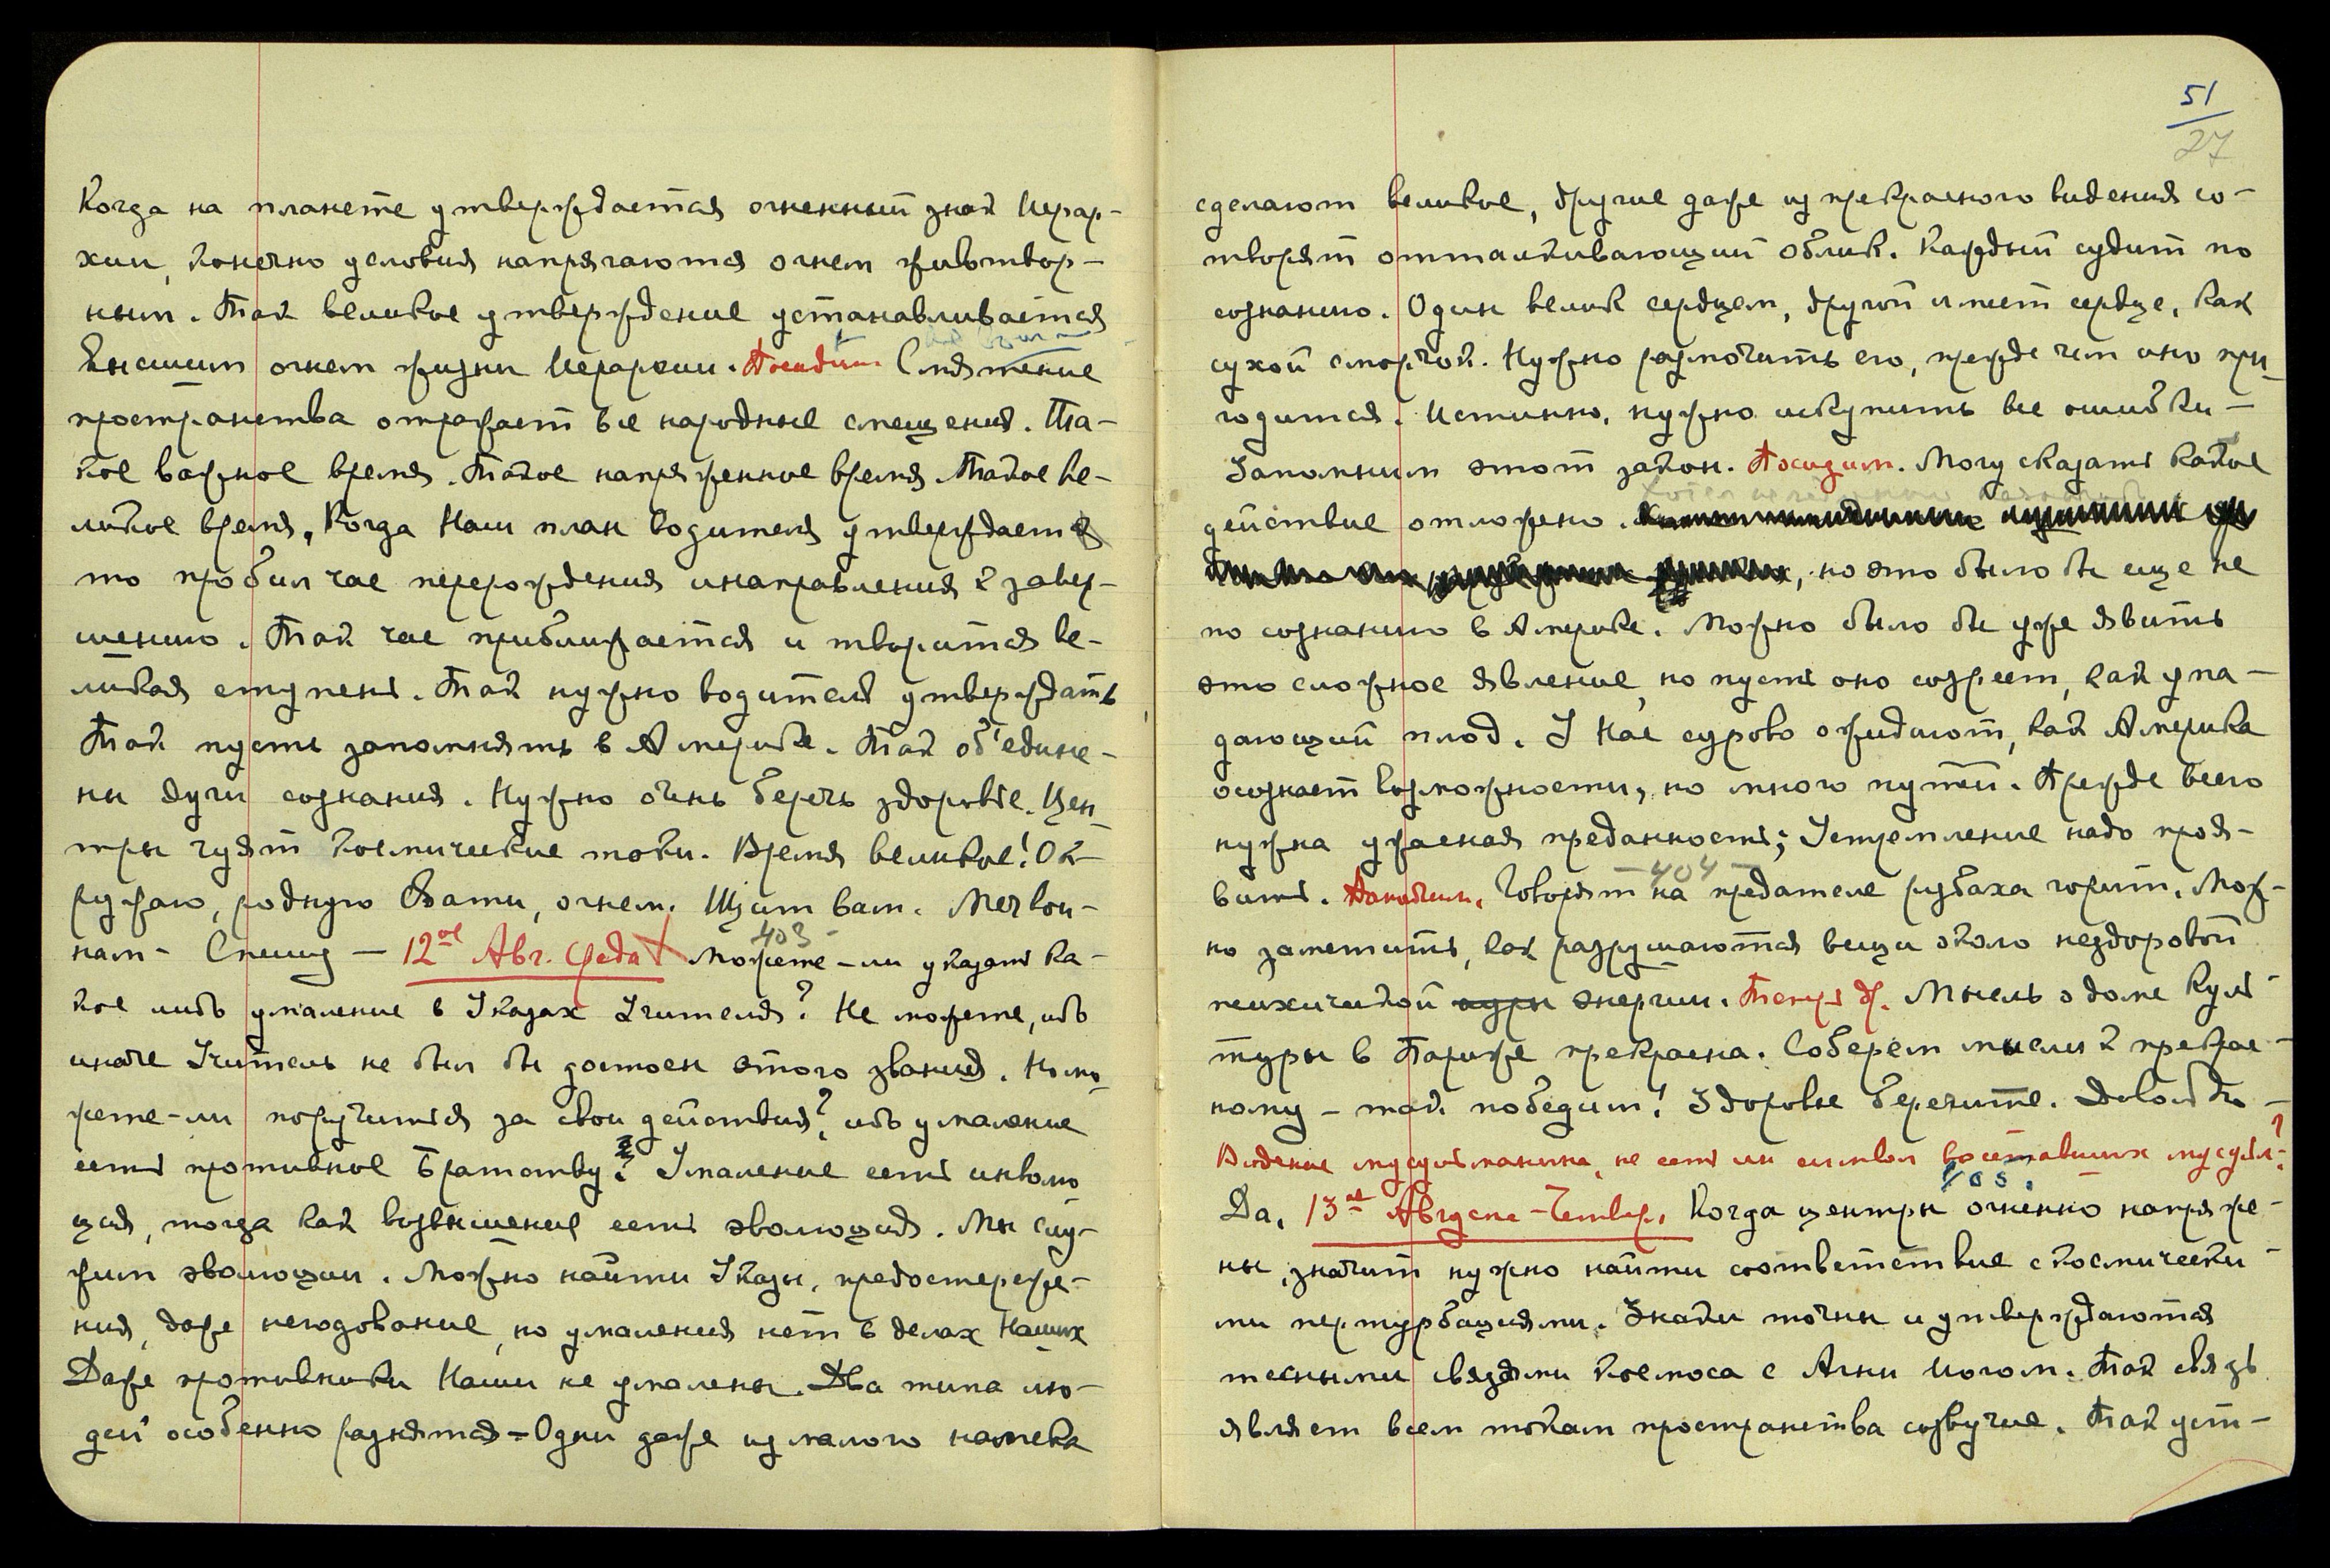 Когда на планете утверждается огненный знак Иерар-
хии, конечно условия напрягаются огнем животвор-
ным. Так великое утверждение устанавливается
Высшим огнем жизни Иерархии. Посидим. Смятение
пространства отражает все народные смещения. Та-
кое важное время. Такое напряженное время. Такое ве-
ликое время. Когда Наш план водителя утверждаем
то пробил час перерождения и направления к завер-
шению. Так час приближается и творится ве-
ликая ступень. Так нужно водителя утверждать
Так пусть запомнять в Америке. Так об'едине-
ны духи сознания. Нужно очень беречь здоровье. Цен-
тры чуят космические токи. Время великое! Ок-
ружаю, родную Свати, огнем. Щит вам. Меч вои-
нам - Спешу - 12ое Авг. Среда 403 - Можете-ли указать ка-
кое либо умаление в Указах Учителя? Не можете, ибо
иначе Учитель не был бы достоен этого звания. Но мо-
жете-ли поручиться за свои действия? ибо умаление
есть противное Братству. Умаление есть инволю-
ция, тогда как возвышение есть эволюция. Мы слу-
жим эволюции. Можно найти Указы, предостереже-
ния, даже негодование, но умаления нет в делах Наших
Даже противники Наши не умалены. Два типа лю-
дей особенно разнятся - Одни даже из малого намека
51
27
сделают великое, другие даже из прекрасного видения со-
творят отталкивающий облик. Каждый судит по
сознанию. Один велик сердцем, другой имеет сердце, как
сухой сморчок. Нужно размочить его, прежде чем оно при-
годится. Истинно, нужно искупить все ошибки -
Запомним этот закон. Посидим. Могу сказать какое
действие отложено. , но это было бы еще не
по сознанию в Америке. Можно было бы уже явить
это сложное явление, но пусть оно созреет, как упа-
дающий плод. У Нас сурово ожидают, как Америка
осознает возможности, но много путей. Прежде всего
нужна ужасная преданность; Устремление надо проя-
вить. - 404 - Говорят на предателе рубаха горит. Мож-
но заметить, как разрушаются вещи около нездоровой
психической ауры энергии. Теперь др. Мысль о доме Куль-
туры в Париже прекрасна. Соберем мысли к прекрас-
ному - так победим! Здоровье берегите. Довольно -
Видение мусульманина, не есть ли символ восставших мусульм?
Да. 13ое Августа - Четвер. 405. Когда центры огненно напряже-
ны, значит нужно найти соответствие с космически-
ми пертурбациями. Знаки точны и утверждаются
тесными связями космоса с Агни Йогом. Так связь
являет всем токам пространства созвучие. Так уст-